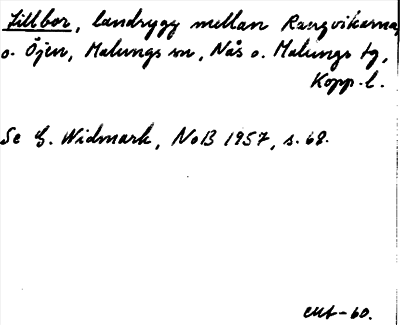 Lillbor, landrygg mellan Rangvikarna
o. Öjen, Malungs sn, Nås o. Malungs tg,
Kopp. l.
Se G. Widmark, NoB 1957, s. 68.
-60.